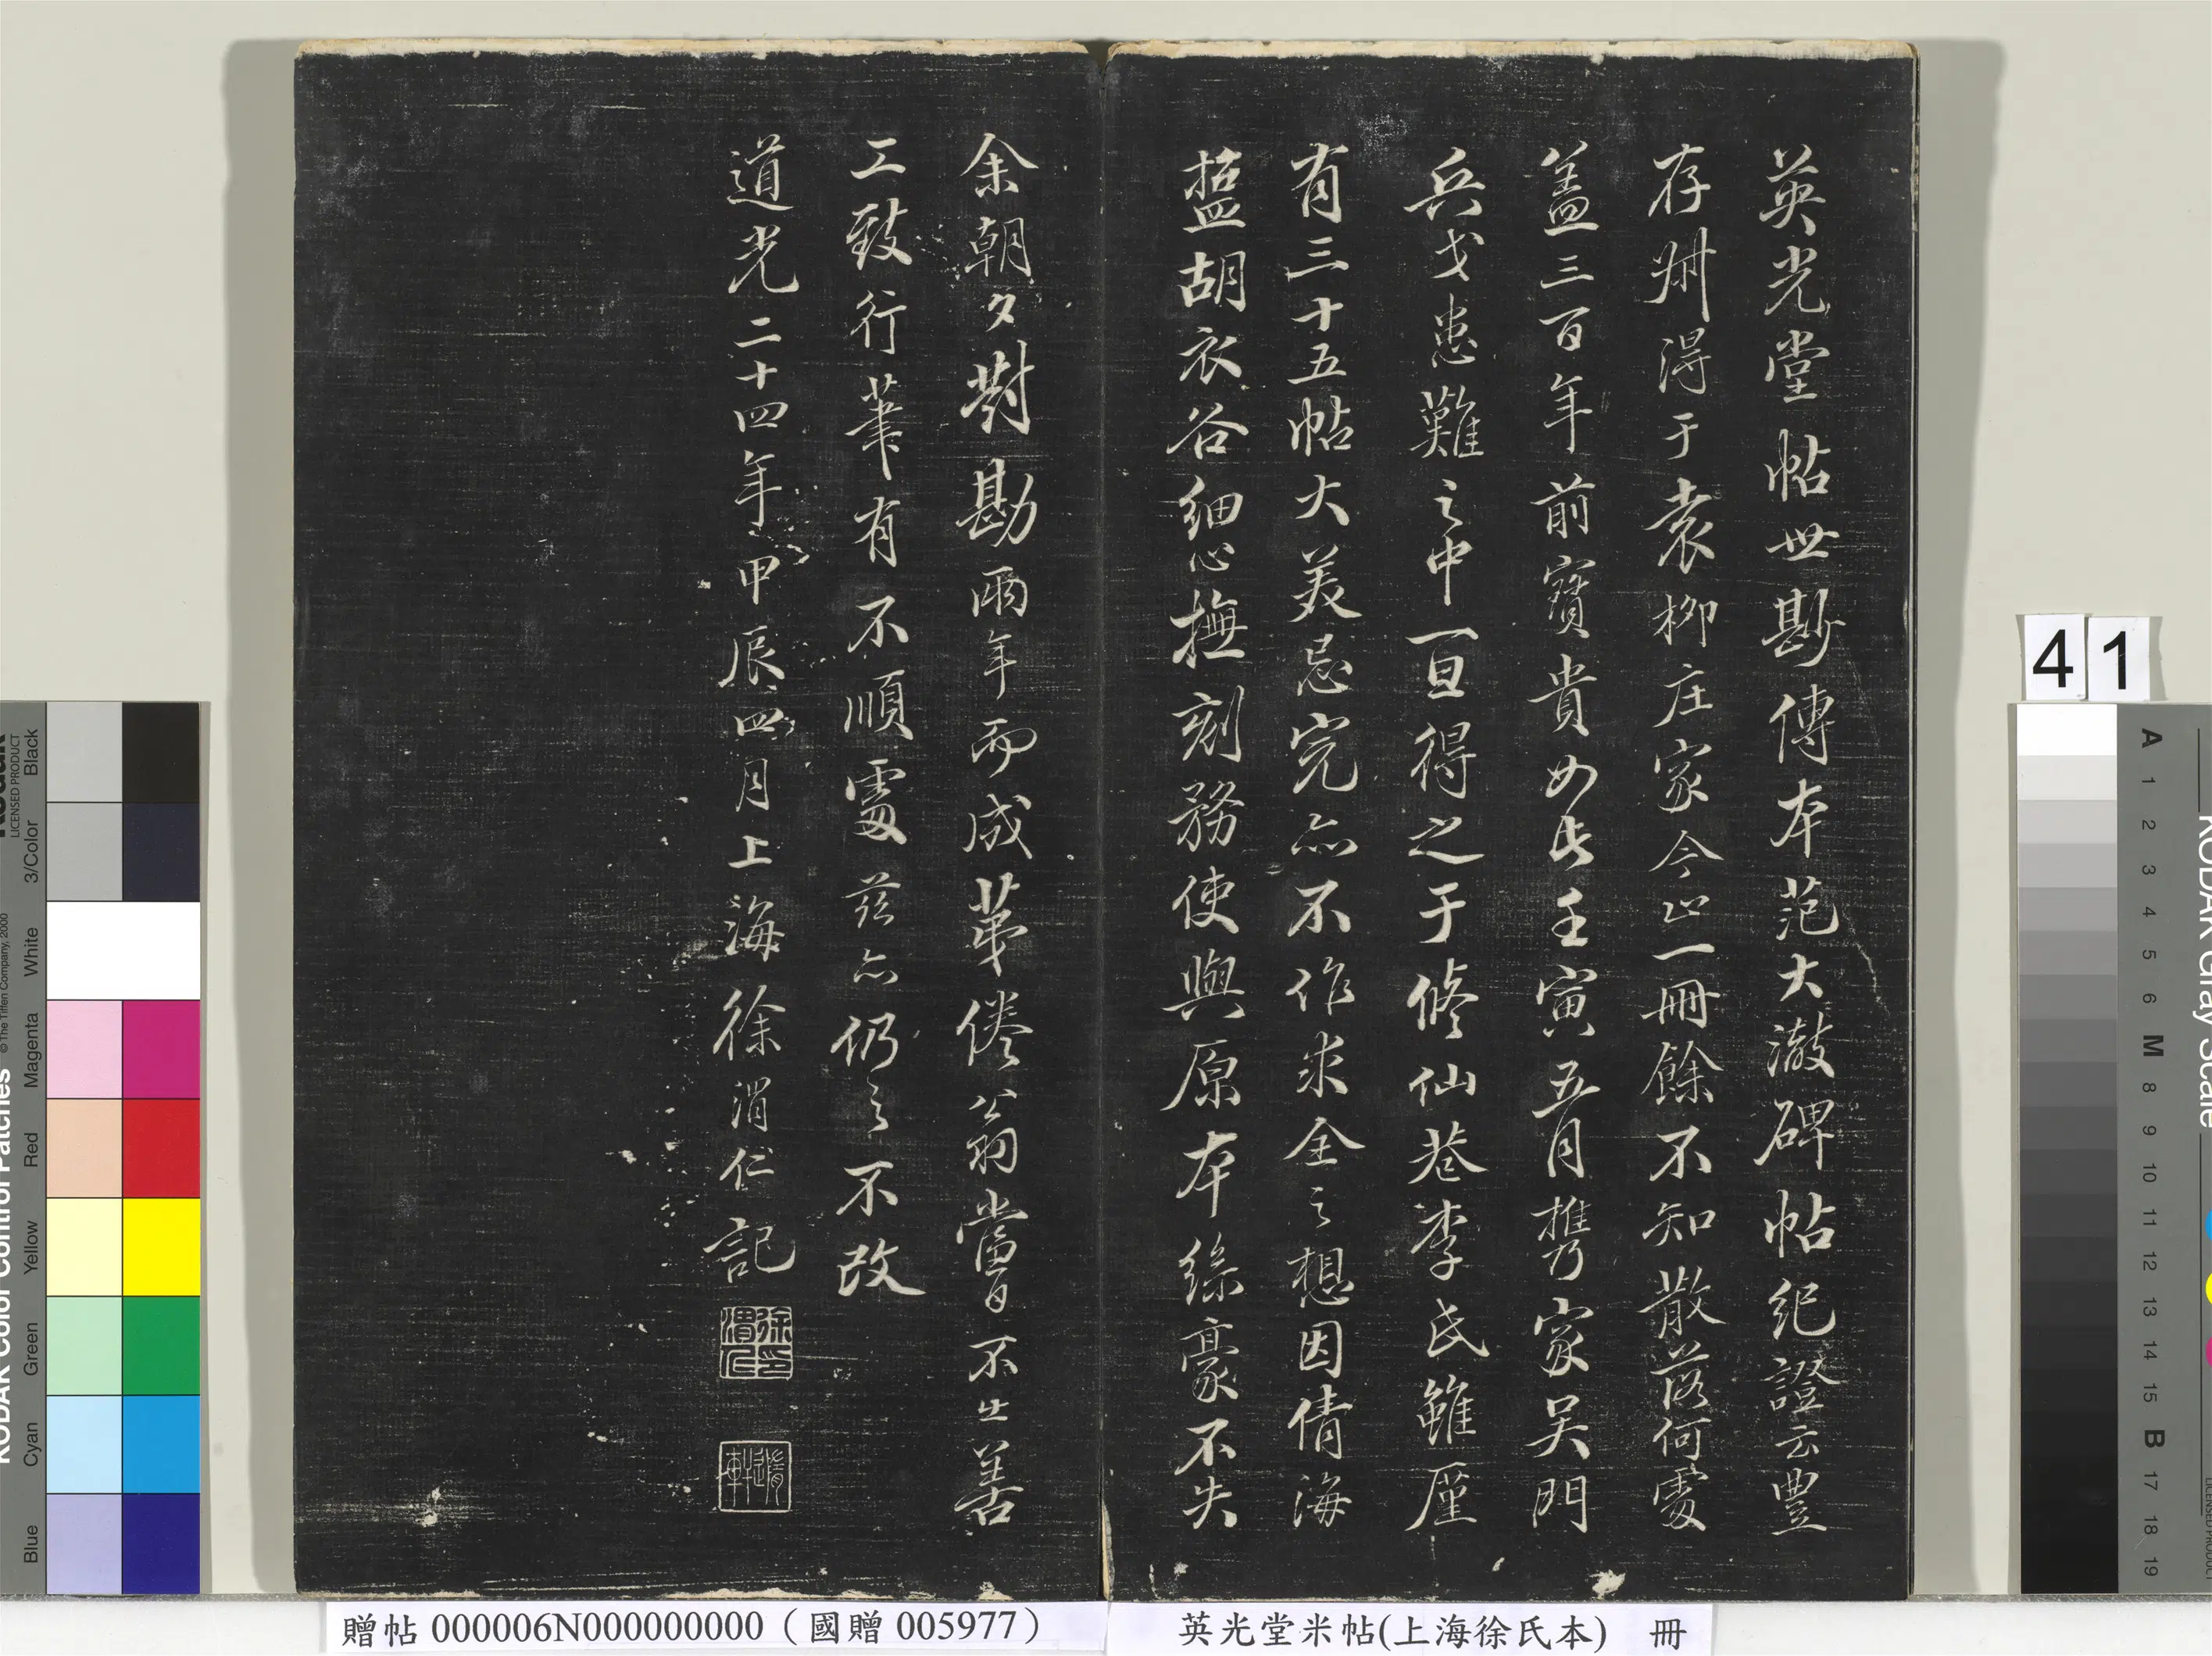 英光堂帖世尠傳本范大澈碑帖紀證云豐
存州得于袁柳庄家今止一冊餘不知散落何處
盖三百年前寳貴如此壬寅五月携家吴門
兵戈患難之中一旦得之于修仙巷李氏雖厪
有三十五帖大美忌完亦不作求全之想因倩海
盬胡衣谷細心撫刻務使與原本絲豪不失
余朝夕對勘兩年而成苐倦翁當日不止善
工致行筆有不順處兹亦仍之不改
道光二十四年甲辰四月上海徐渭仁記
徐渭仁印
隋軒
41
贈帖 000006N000000000（國贈 005977）
英光堂米帖(上海徐氏本) 冊
KODAK Color Control Patches
LICENSED PRODUCT
© The Tiffen Company, 2000
Blue Cyan Green Yellow Red Magenta White 3/Color Black
KODAK Gray Scale
A 1 2 3 4 5 6 M 8 9 10 11 12 13 14 15 B 17 18 19